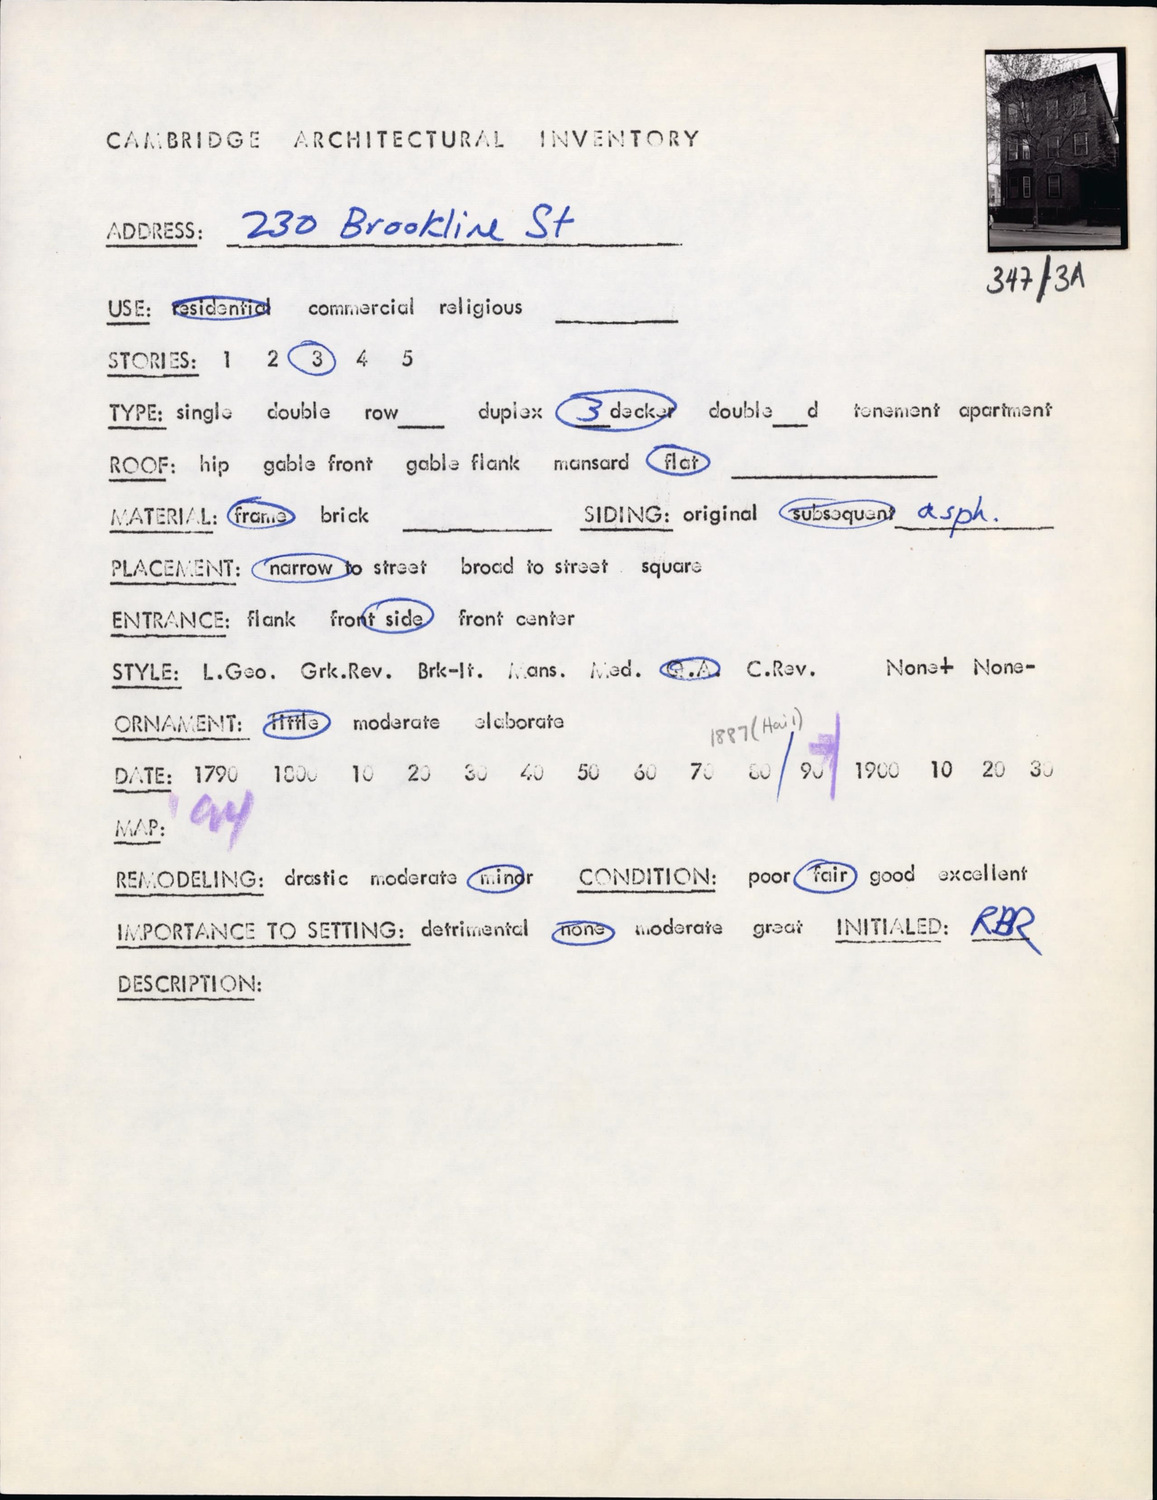 CAMBRIDGE ARCHITECTURAL INVENTORY
347/3A
ADDRESS: 230 Brookline St
USE: residential commercial religious
STORIES: 1 2 3 4 5
TYPE: single double row___ duplex 3 decker double___d tenement apartment
ROOF: hip gable front gable flank mansard flat
MATERIAL: frame brick SIDING: original subsequent asph.
PLACEMENT: narrow to street broad to street square
ENTRANCE: flank front side front center
STYLE: L.Geo. Grk.Rev. Brk-It. Mans. Med. Q.A. C.Rev. None+ None-
ORNAMENT: little moderate elaborate
1887 (Hail)
DATE: 1790 1800 10 20 30 40 50 60 70 80 90 1900 10 20 30
'94
MAP:
REMODELING: drastic moderate minor CONDITION: poor fair good excellent
IMPORTANCE TO SETTING: detrimental none moderate great INITIALED: RBR
DESCRIPTION: